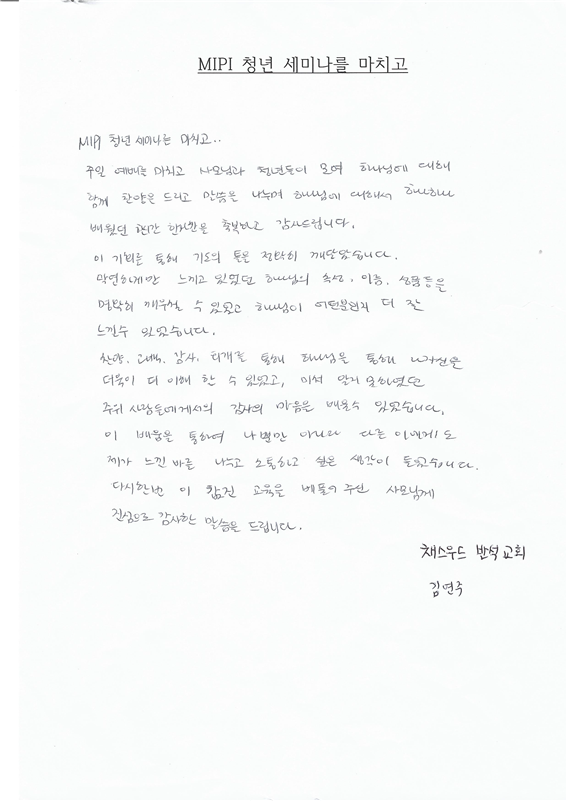 MIPI 청년 세미나를 마치고
MIPI 청년 세미나를 마치고..
주일 예배를 마치고 사모님과 청년들이 모여 하나님에 대해
함께 찬양을 드리고 말씀을 나누며 하나님에 대해서 하나하나
배웠던 시간 한시간을 축복하고 감사드립니다.
이 기회를 통해 기도의 틀을 정확히 깨달았습니다.
막연하게만 느끼고 있었던 하나님의 속성, 이름, 성품등을
명확히 깨우칠 수 있었고 하나님이 어떤분인지 더 잘
느낄수 있었습니다.
찬양, 고백, 감사, 회개를 통해 하나님을 통해 나 자신을
더욱이 더 이해 할 수 있었고, 미처 알지 못하였던
주위 사람들에게서의 감사의 마음을 배울수 있었습니다.
이 배움을 통하여 나뿐만 아니라 다른 이에게도
제가 느낀 바를 나누고 소통하고 싶은 생각이 들었습니다.
다시한번 이 값진 교육을 베풀어 주신 사모님께
진심으로 감사한 말씀을 드립니다.
채스우드 반석교회
김연주